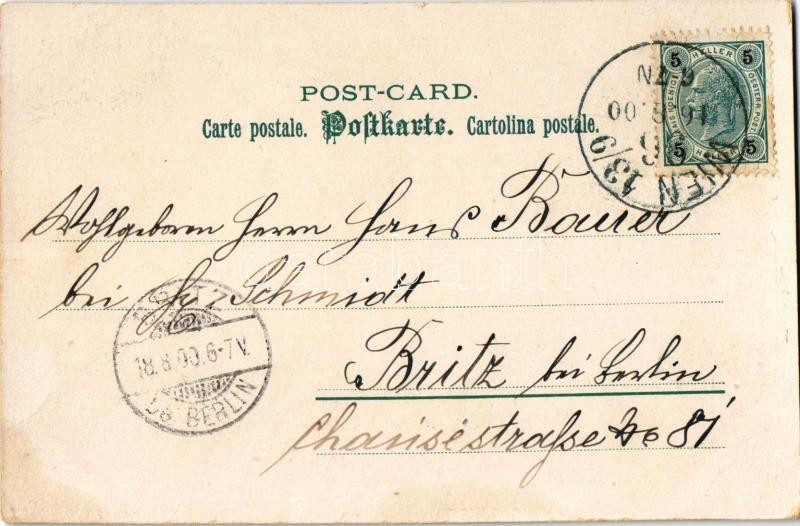 POST-CARD.
Carte postale. Postkarte. Cartolina postale.
5 HELLER 5
5 5
WIEN 13/9
96
Wohlgeboren Herrn Hans Bauer
bei Schmidt
Britz bei Berlin
Chauséstraße No 81
BRITZ
18.8.00.6-7V.
BERLIN
darabanth